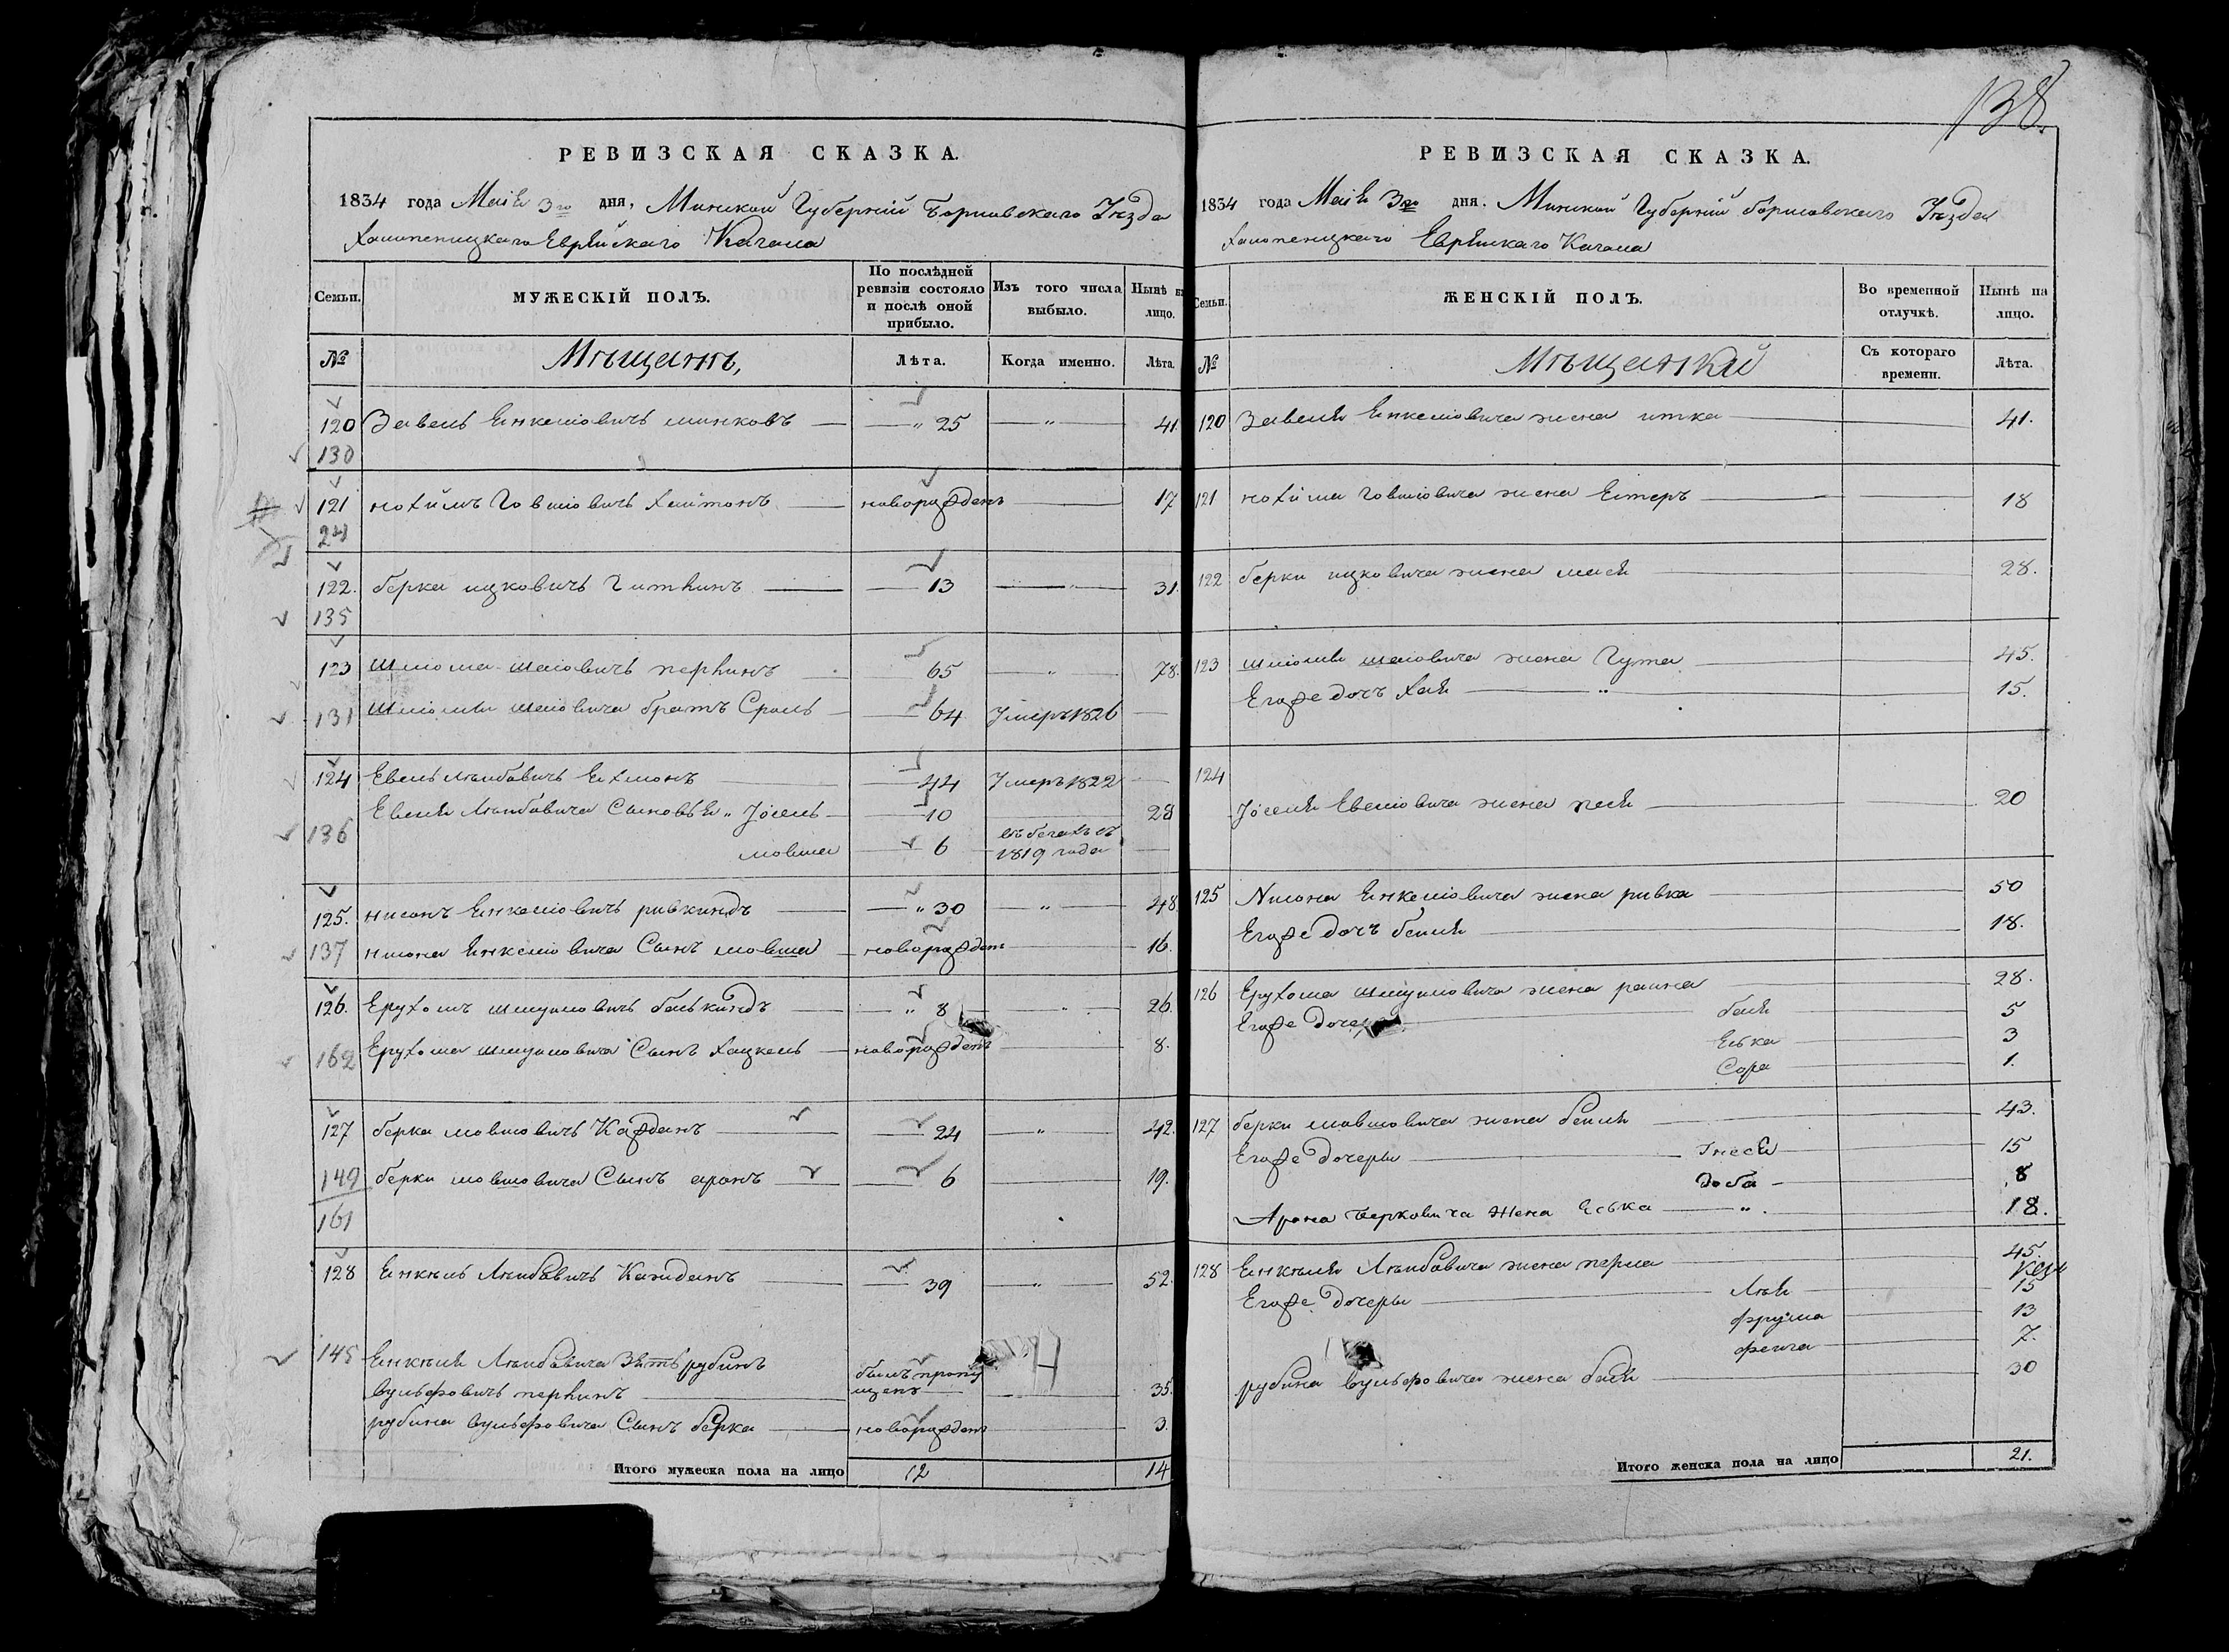 138.
РЕВИЗСКАЯ СКАЗКА.
1834 года Маія 3го дня, Минской Губерніи Борисовскаго Уѣзда
Холопеницкаго Еврейскаго Кагала
Семьи.
МУЖЕСКІЙ ПОЛЪ.
По послѣдней ревизіи состояло и послѣ оной прибыло.
Изъ того числа выбыло.
Нынѣ на лицо.
№
Мѣщанъ,
Лѣта.
Когда именно.
Лѣта.
120 Завель Енкелiовичъ минковъ — " 25 — " — 41.
130
121 нохимъ Говшiовичъ Хаитонъ — новорожденъ — 17
24
122. берка ицковичъ Гиткинъ — 13 — " — 31.
135
123 шліома шаiовичъ перкинъ — 65 — " — 78.
131 шліомы шаiовича братъ Сроль — 64 Умеръ 1826 —
124 Евель Лѣибовичъ Ехмонъ — 44 Умеръ 1822 —
Евеля Лѣибовича Сыновья " Іосель — 10 — 28
136
мовша — 6 — въ бегахъ съ 1819 года —
125. нисонъ Енкелiовичъ ривкиндъ — " 30 — " — 48.
137 нисона Енкелiовича Сынъ мовша — новорожденъ — 16.
126. Ерухомъ шмуиловичъ белькиндъ — " 8 — " — 26.
162 Ерухома шмуиловича Сынъ Хацкель — новорожденъ — 8.
127 берка мовшовичъ Кажданъ — 24 — " — 42.
149 берки мовшовича Сынъ аронъ — 6 — 19.
161
128 Енкѣль Лѣибовичъ Кажданъ — 39 — " — 52.
145 Енкѣля Лѣибовича Зять рубинъ
вульфовичъ перкинъ — былъ пропущенъ — 35.
рубина вульфовича Сынъ берка — новорожденъ — 3.
Итого мужеска пола на лицо 12 14
РЕВИЗСКАЯ СКАЗКА.
1834 года Маія 3го дня. Минской Губерніи борисовскаго Уѣзда
Холопеницкаго Еврейскаго Кагала
Семьи.
ЖЕНСКІЙ ПОЛЪ.
Во временной отлучкѣ.
Нынѣ на лицо.
№
Мѣщанки
Съ котораго времени.
Лѣта.
120 Завеля Енкелiовича жена итка — 41.
121 нохима Говшiовича жена Естеръ — 18
122 берки ицковича жена мася — 28.
123 шліомы шаiовича жена Гута — 45.
Егоже дочъ Хая — " — 15.
124
Іоселя Евелiовича жена песя — 20
125 Nисона Енкелiовича жена ривка — 50
Егоже дочъ беиля — 18.
126 Ерухома шмуиловича жена раина — 28.
Егоже дочери — бася — 5
Еська — 3
Сора — 1.
127 берки мовшовича жена беиля — 43.
Егоже дочеры — Гнеся — 15
Доба — 8
Арона Берковича жена Еська — " — 18.
128 Енкѣля Лѣибовича жена перла — 45.
Егоже дочеры — Лѣя — 15
фрума — 13
феига — 7.
рубина вульфовича жена бася — 30
Итого женска пола на лицо 21.